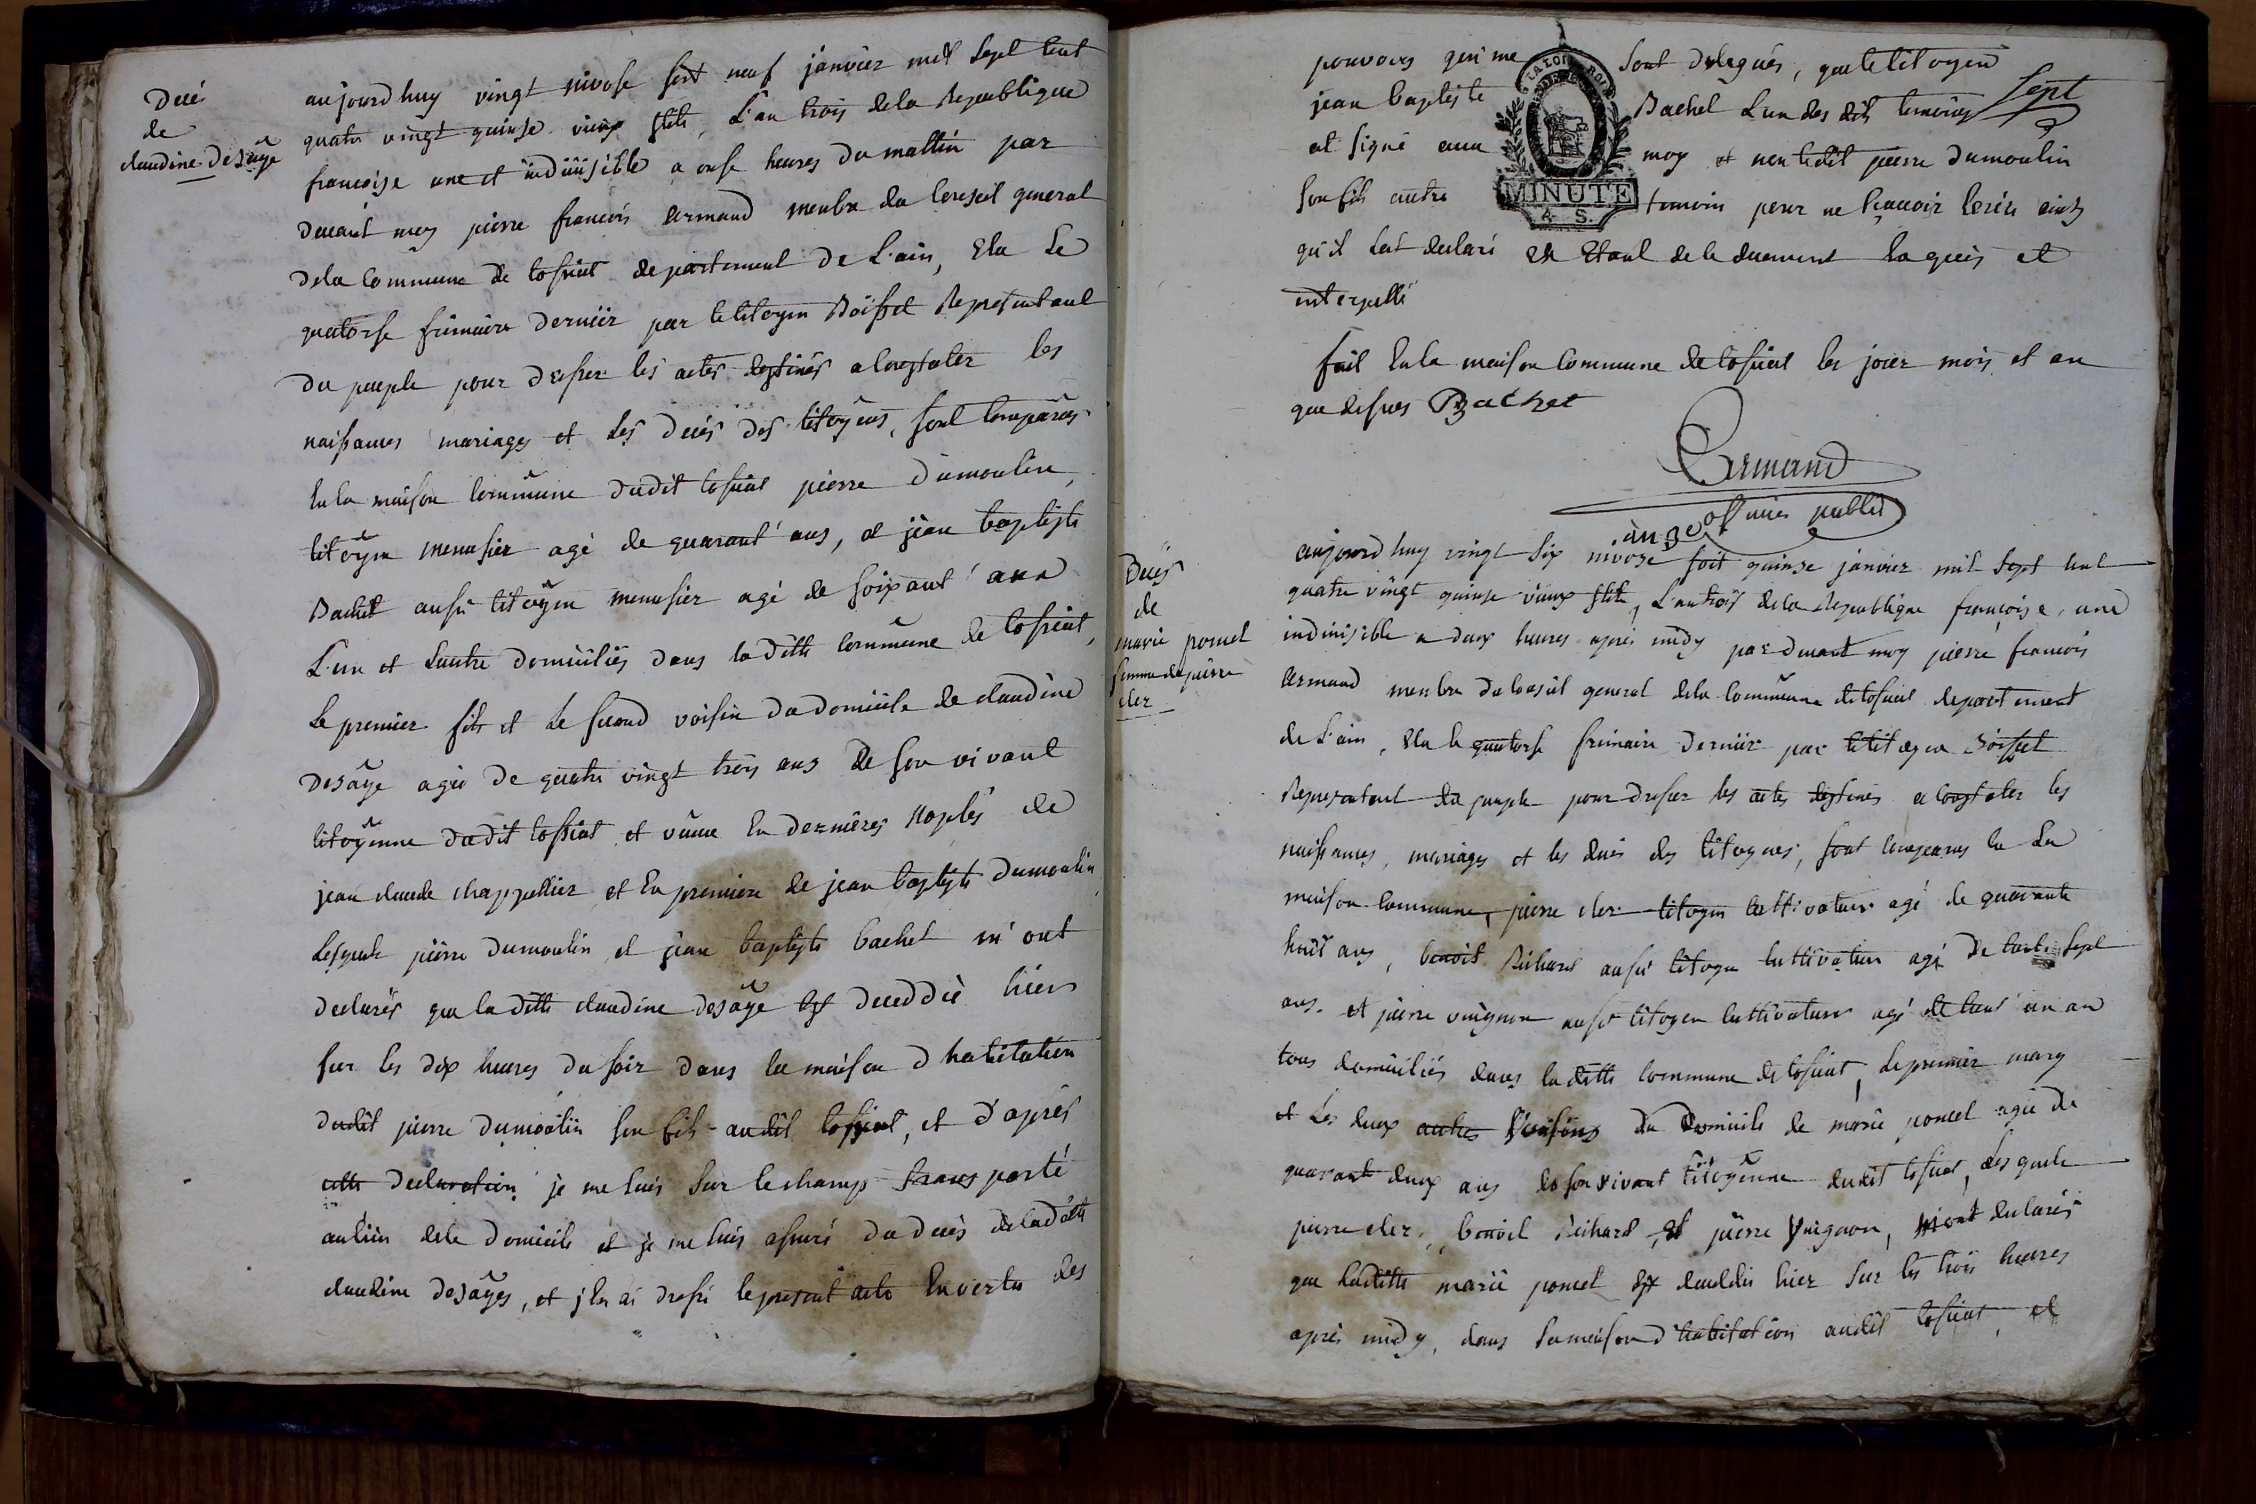 Decés
de
claudine desaÿe
aujourd huy vingt nivose soit neuf janvier mil sept cent
quatre vingt quinse vieux stile, L'an trois dela Republique
françoise une et indiüisible a onse heures du mattin par
devant moy pierre françois Armand menbre du Conseil general
dela Commune de tossiat departement de L'ain, Elu Le
quatorse frimaire dernier par le Citoyen Boisset Representant
du peuple pour dresser les actes destinés a Constater les
naissances mariages et Les decés des Citoyens, sont Comparus
En la maison Commune dudit tossiat pierre dumoulin,
Citoyen menusier agé de quarant' ans, et jean baptiste
Bachet aussi Citoyen menusier agé de soixant' ans
L'un et Lautre domiciliés dans la ditte Commune de tossiat,
Le premier fils et Le second voisin du domicile de claudine
desaÿe agée de quatre vingt trois ans de son vivant
Citoÿenne dudit tossiat et veuve En dernieres noples de
jean claude chappellier et En premiere de jean baptiste Dumoulin,
Lesquels pierre dumoulin et jean baptiste bachet m'ont
declarés que la ditte claudine desaÿe Est deceddée hier
sur les dix heures du soir dans la maison d habitation
dudit pierre dumoulin son fils audit tossiat, et d'après
cette declaration je me suis sur le champ transporté
au lieu dele domicile et je me suis assuré du decés de la ditte
claudine desaÿes, et j'En ai dressé le present acte En vertu des
pouvoirs qui me sont delegués, que le Citoyen
Sept
jean baptiste Bachet L'un des dits temoins
at signé avec moy et non ledit pierre dumoulin
son fils autre temoin pour ne sçavoir Ecrire ainsy
qu'il Lat declaré En Etant dele duement Enquis et
interpellé
LA LOI
ROI
MINUTE
4. S.
fait En la maison Commune de tossiat les jour mois et an
que dessus Bachet
Armand
officier public
Decés
de
marie poncet
femme de pierre
cler
onze
aujourd huy vingt six nivose soit quinse janvier mil sept cent
quatre vingt quinse vieux stile, L'an trois dela Republique françoise, une
indivisible a deux heures aprés midy par devant moy pierre françois
Armand menbre du Conseil general dela Commune de tossiat departement
de L'ain, Elu le quatorse frimaire dernier par le Citoyen Boisset
Representant du peuple pour dresser les actes destinés a Constater les
naissances, mariages et les decés des Citoyens, sont Comparus En La
maison Commune, pierre cler Citoyen Cultivateur agé de quarante
huit ans, benoit Richard aussi Citoyen Cultivateur agé de trente sept
ans. et pierre vuignon aussi Citoyen Cultivateur agé de trent' un an
tous domiciliés dans la ditte Commune de tossiat, Le premier mary
et Les deux autres Voisins du Domicile de marie poncet agée de
quarante deux ans de son vivant Citoyenne dudit tossiat, Lesquels
pierre cler, benoit Richard, et pierre Vuignon, m'ont declarés
que laditte marie poncet Est deceddée hier sur les trois heures
aprés midy, dans sa maison d'habitation audit tossiat, et